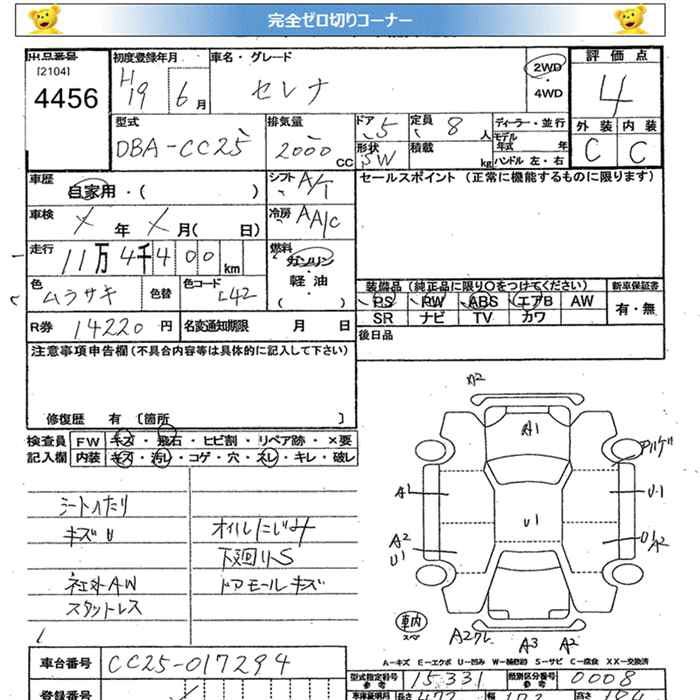 完全ゼロ切りコーナー
出品番号 初度登録年月 車名・グレード 2WD 評価点
[2104] ・
4456 H19 6月 セレナ 4WD 4
型式 排気量 ドア 5 定員 8人 ディーラー・並行 外装 内装
DBA-CC25 2000CC 形状 SW 積載 kg モデル年式 年 C C
ハンドル 左・右
車歴 自家用・( ) シフト A/T セールスポイント (正常に機能するものに限ります)
車検 メ年 メ月( 日) 冷房 AA/C
走行 11万4千400km 燃料 ガソリン
軽油
( )
色 ムラサキ 色替 色コード L42 装備品 (純正品に限り○をつけてください) 新車保証書
PS PW ABS エアB AW 有・無
SR ナビ TV カワ
R券 14220円 名変通知期限 月 日 後日品
注意事項申告欄 (不具合内容等は具体的に記入して下さい)
修復歴 有 〔箇所 〕
検査員 FW キズ・飛石・ヒビ割・リペア跡・×要
記入欄 内装 キズ・汚レ・コゲ・穴・スレ・キレ・破レ
シートヘたり
キズU オイルにじみ
下廻りS
社外AW ドアモールキズ
スタットレス
A2
A1 アリゲ
A1 U1
U1
A2 U1 A2
U1
車内
スペア
A2クレ A3 A2
A-キズ E-エクボ U-凹み W-補修跡 S-サビ C-腐食 XX-交換済
車台番号 CC25-017294 型式指定番号 参考 15331 類別区分番号 参考 0008
登録番号 車庫証明用 長さ 472 幅 高さ